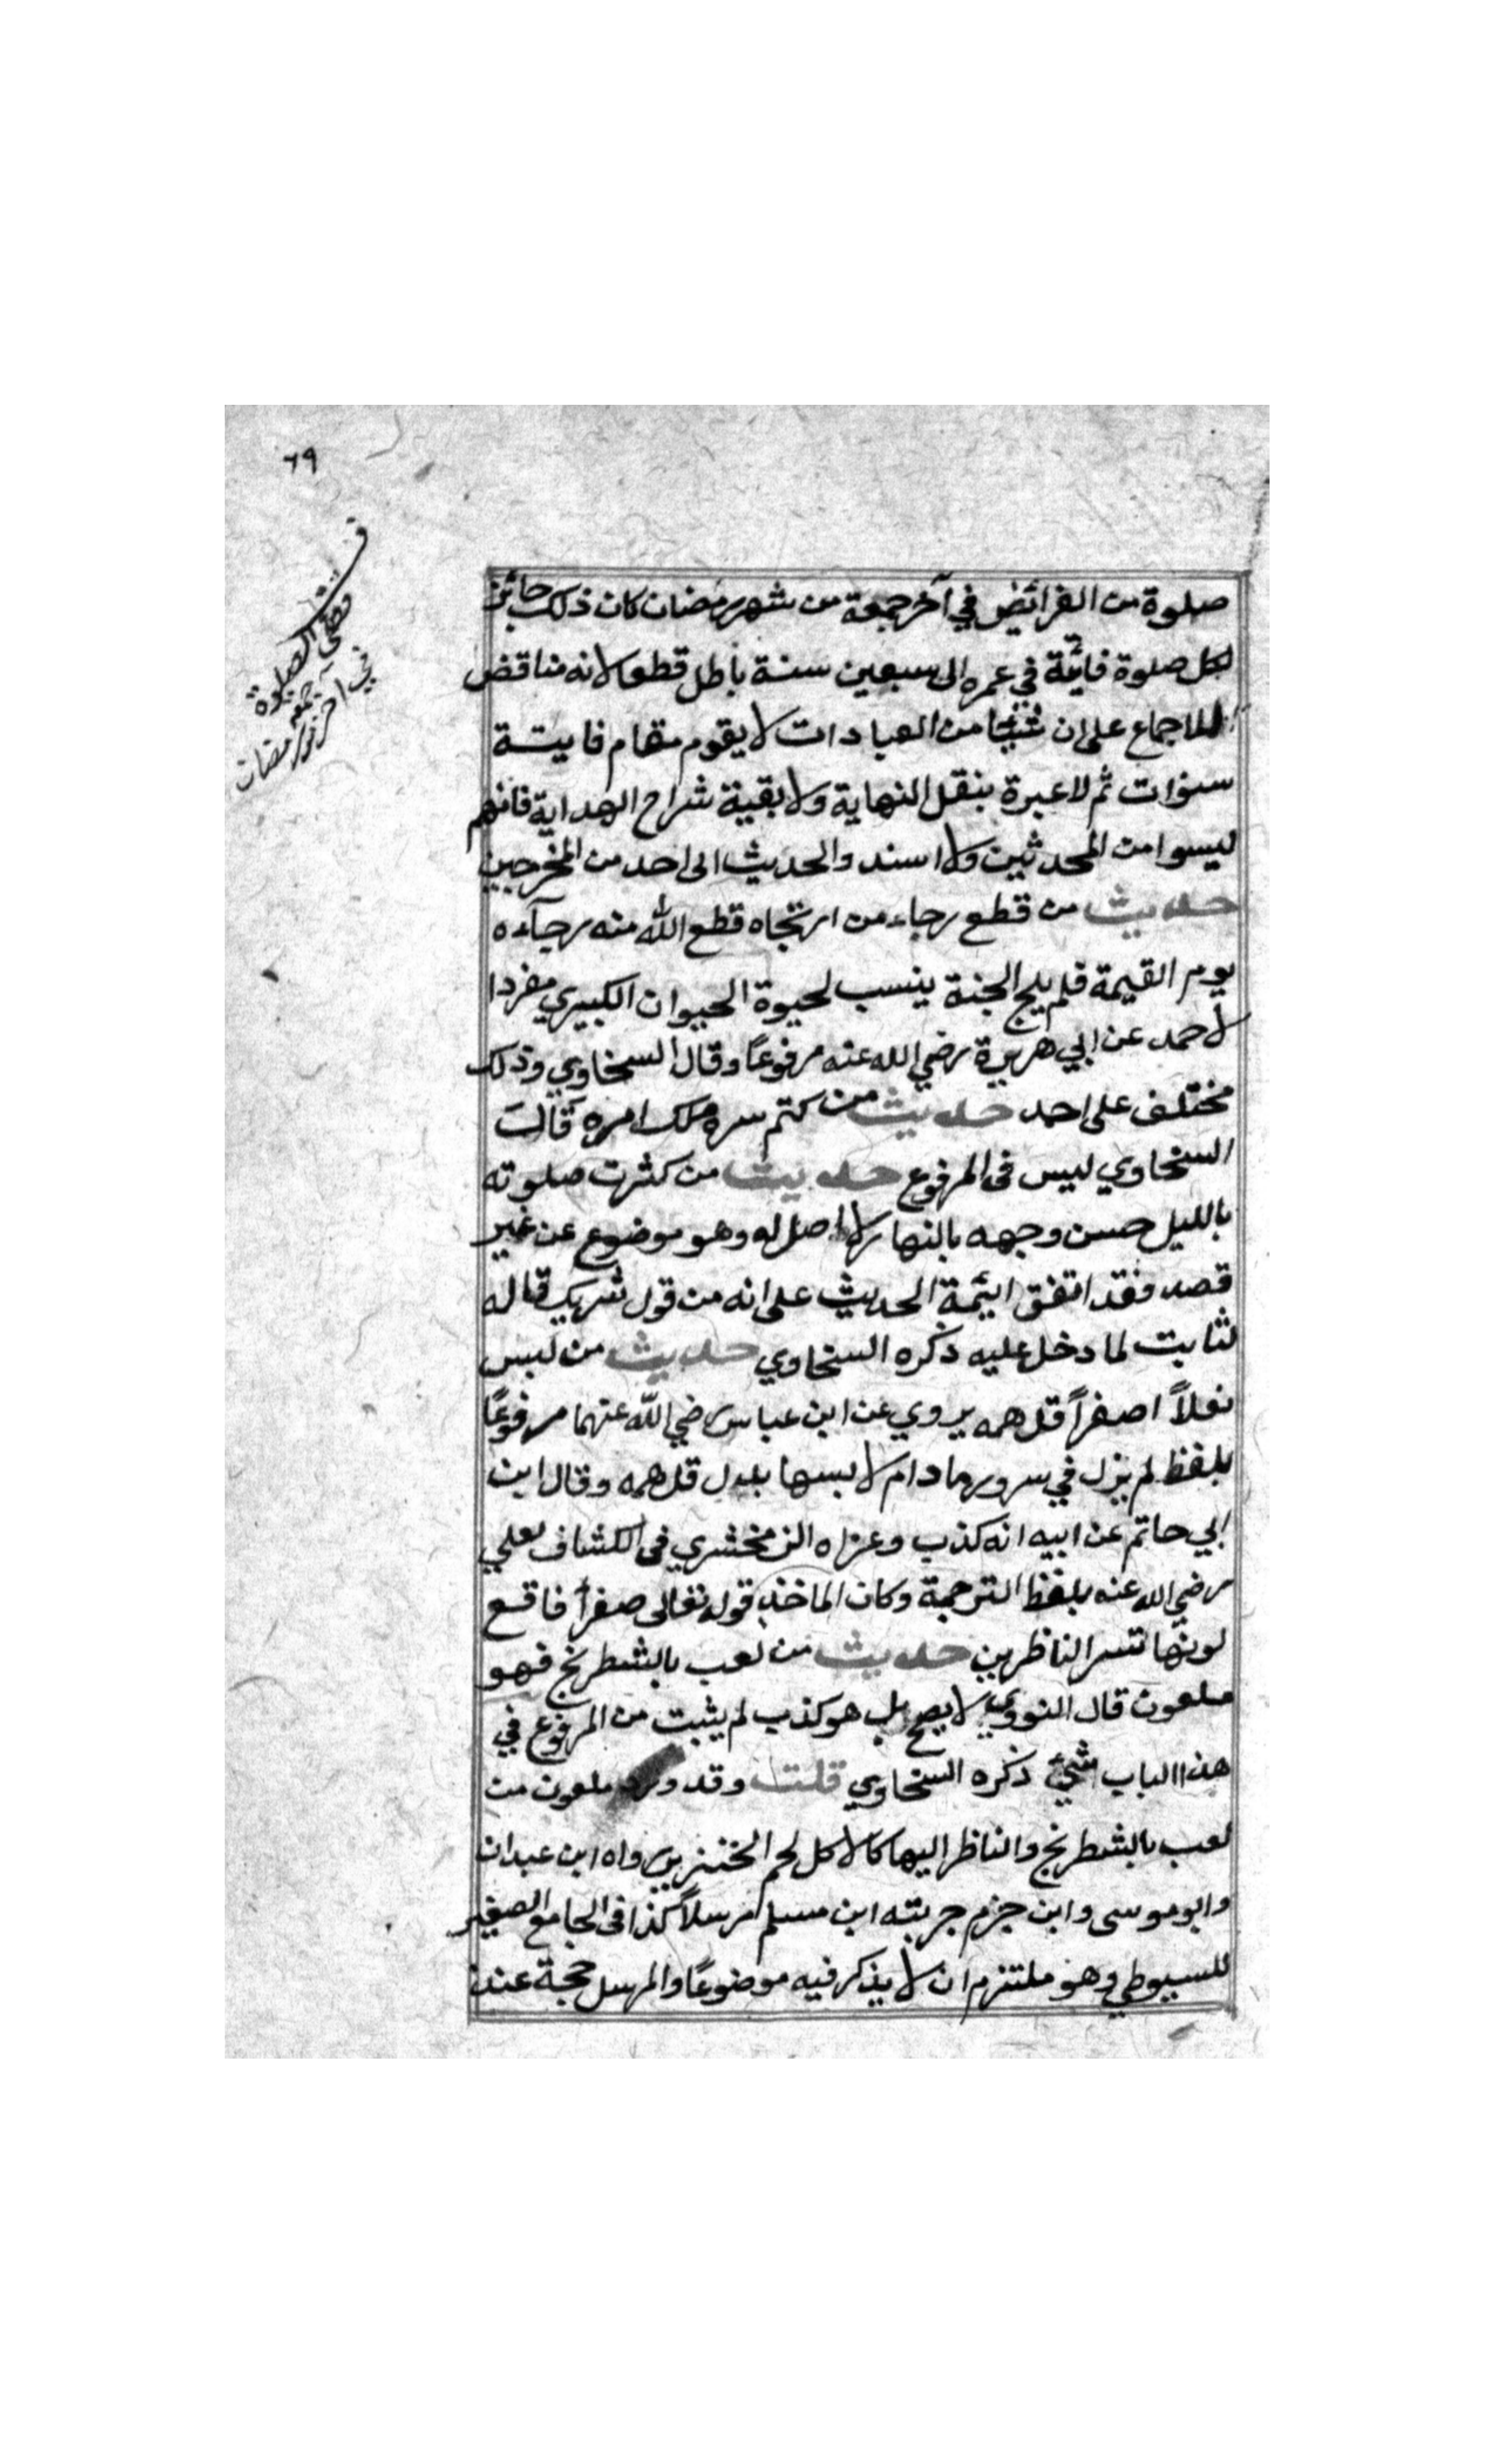 ٦٩
قضى الصلوة
في آخر جمعة
رمضان
صلوة من الفرائض في آخر جمعة من شهر رمضان كان ذلك جائز
لكل صلوة فائتة في عمره الى سبعين سنة باطل قطعا لانه مناقض
للاجماع على ان شيئا من العبادات لا يقوم مقام فايتة
سنوات ثم لا عبرة بنقل النهاية ولا بقية شراح الهداية فانهم
ليسوا من المحدثين ولا اسند والحديث الى احد من المخرجين
حديث من قطع رجاء من ارتجاه قطع الله منه رجآءه
يوم القيمة فلم يلج الجنة ينسب لحيوة الحيوان الكبيري مفردا
لاحمد عن ابي هريرة رضي الله عنه مرفوعًا وقال السخاوي وذلك
مختلف على احمد حديث من كتم سره ملك امره قالت
السخاوي ليس فى المرفوع حديث من كثرت صلوته
بالليل حسن وجهه بالنهار لا اصل له وهو موضوع عن غير
قصد وفقد اتفق ائيمة الحديث على انه من قول شريك قاله
لثابت لما دخل عليه ذكره السخاوي حديث من لبس
نعلاً اصفراً قل همه يروي عن ابن عباس رضي الله عنهما مرفوعًا
بلفظ لم يزل في سرور مادام لابسها بدل قل همه وقال ابن
ابي حاتم عن ابيه انه كذب وعزاه الزمخشري فى الكشاف لعلي
رضي الله عنه بلفظ الترجمة وكان الماخذ قوله تعالى صفرأ فاقع
لونها تسر الناظرين حديث من لعب بالشطرنج فهو
ملعون قال النووي لا يصح بل هو كذب لم يثبت من المرفوع في
هذا الباب شيئ ذكره السخاوي قلت وقد ورد ملعون من
لعب بالشطرنج والناظر اليها كالاكل لحم الخنزير رواه ابن عبدان
وابو موسى وابن جزم جربته ابن مسلم مرسلاً كذا فى الجامع الصغير
للسيوطي وهو ملتزم ان لا يذكر فيه موضوعًا والمرسل حجة عند